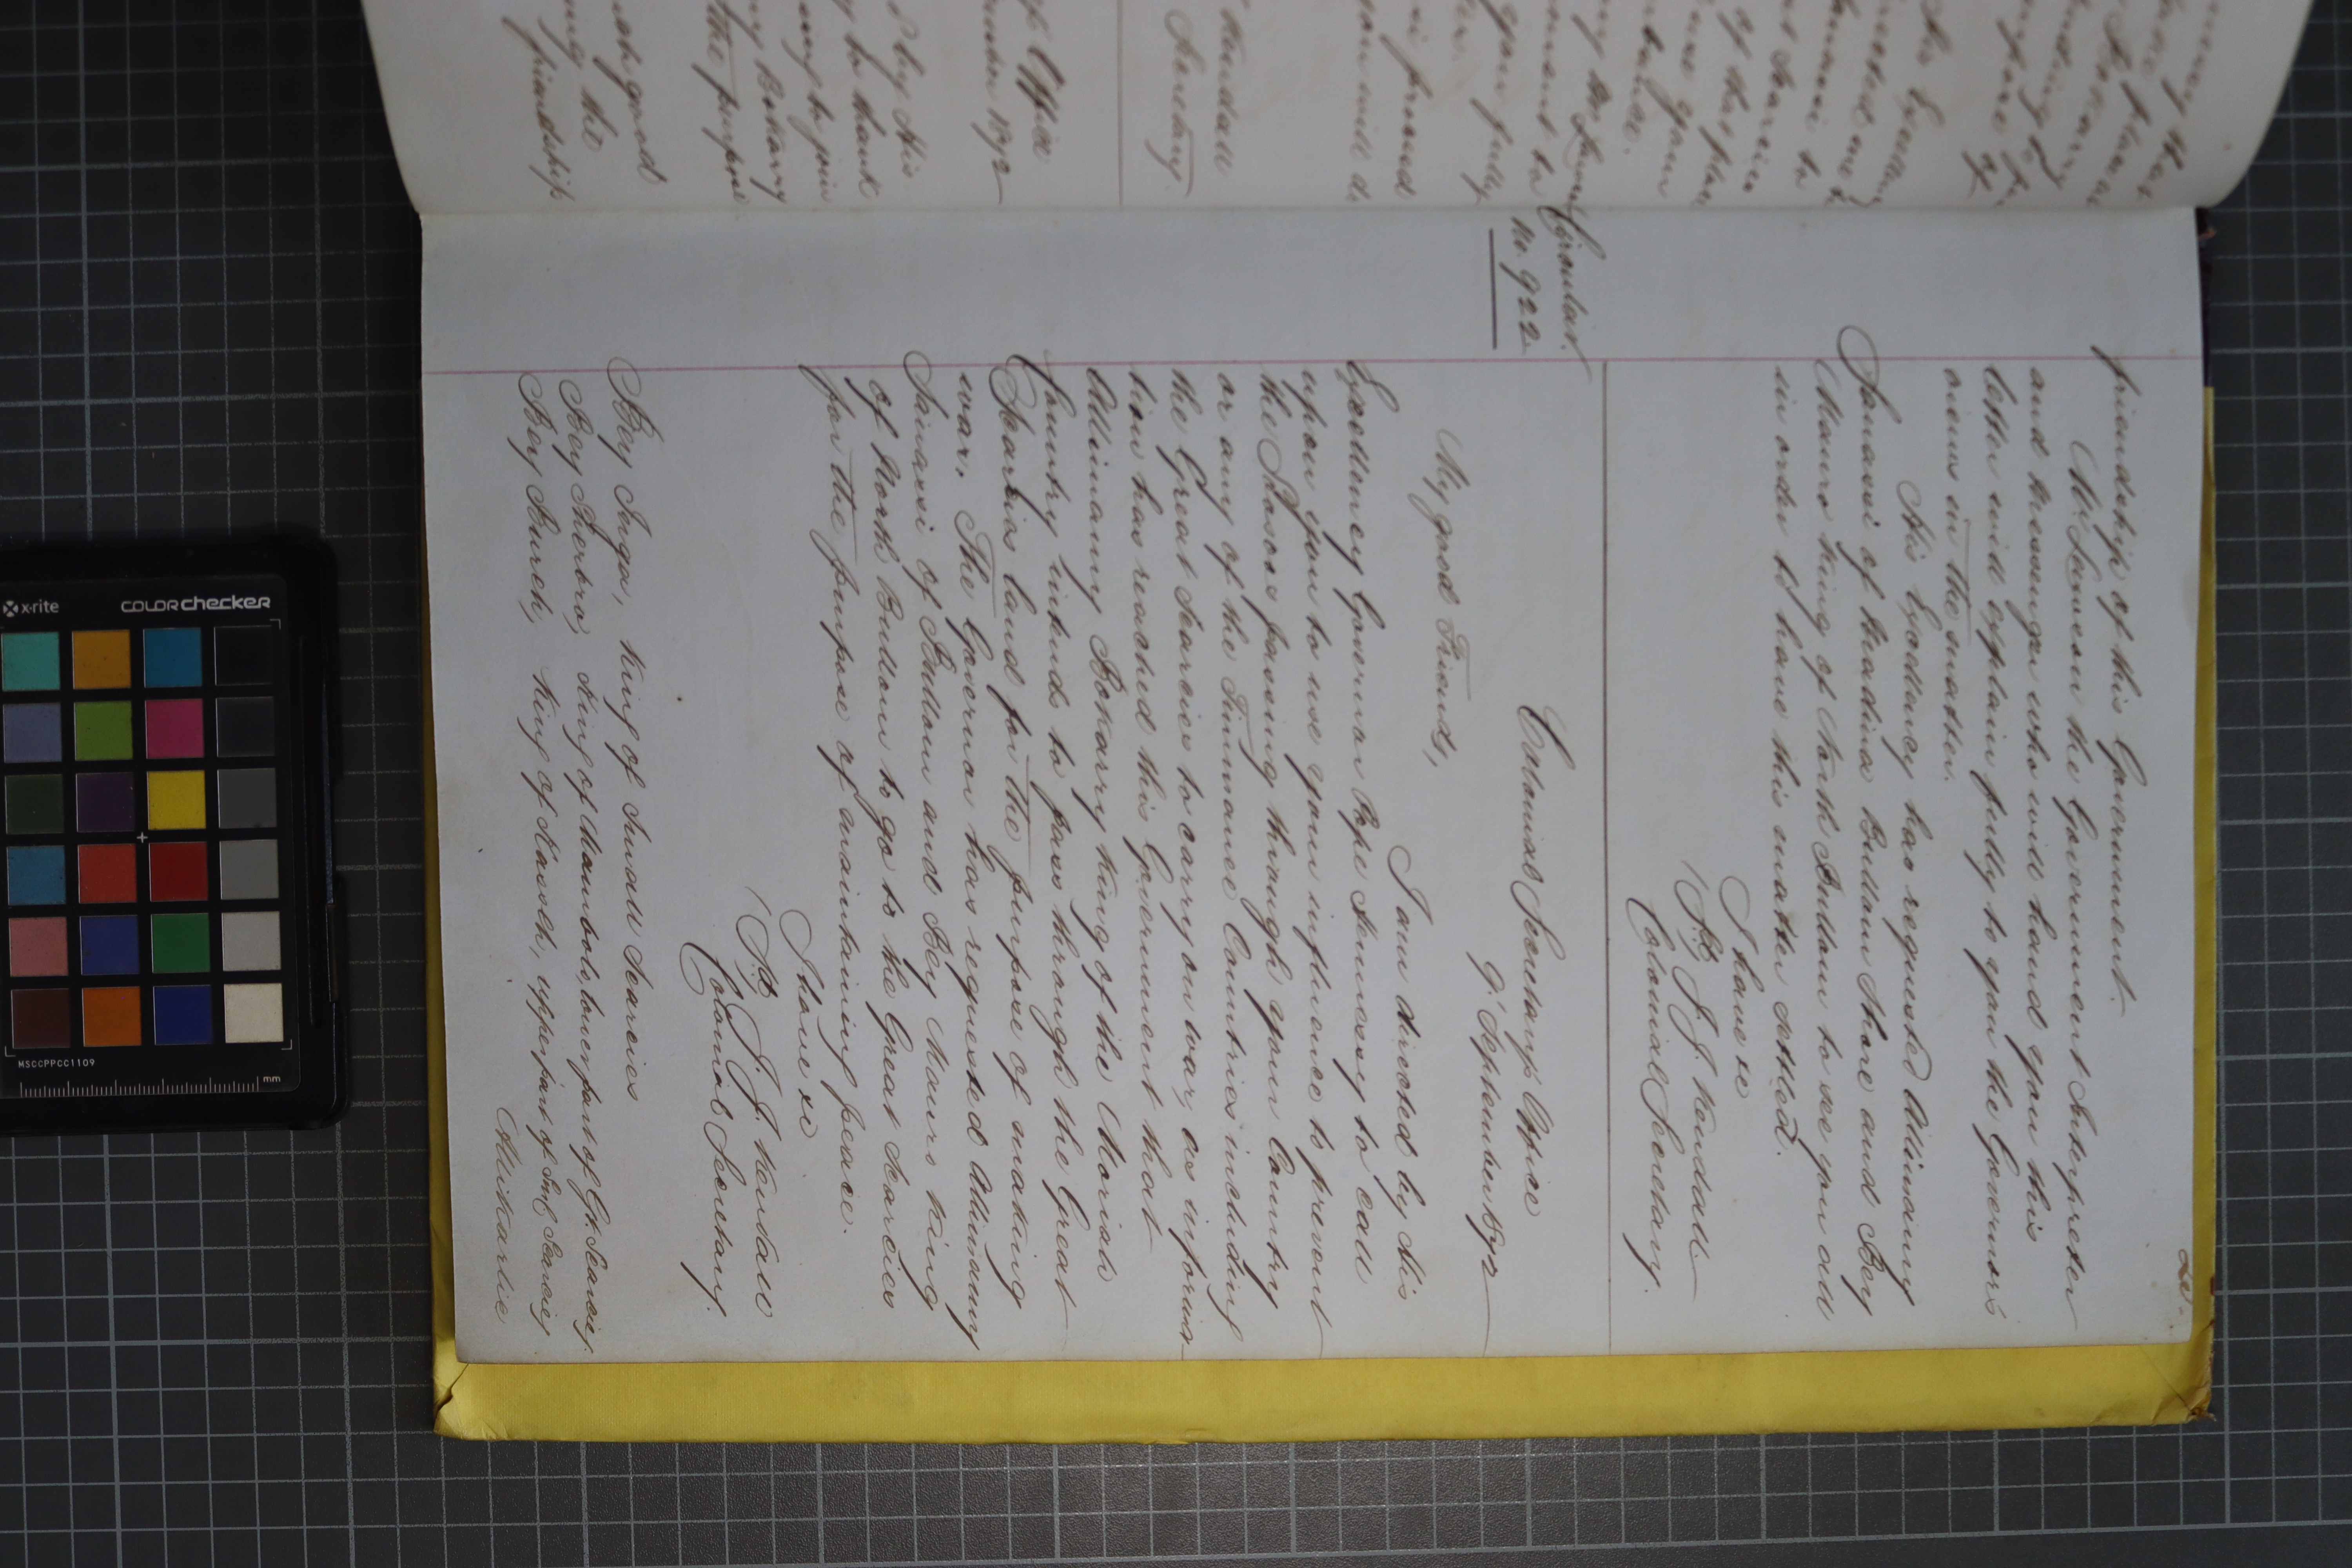 20.
friendship of this Government.
Mr Lawson the Government Interpreter
and Messenger who will hand you this
letter will explain fully to you the Governors
views in the matter.
His Excellency has requested Alimamy
Sanassi of Medina Bullom Shore and Bey
Mauro King of North Bullom to see you all
in order to have this matter settled.
I have &c
J. J. Kendall
Colonial Secretary.
Circular.
No. 922
Colonial Secretary's Office
9 September 1872
My good Friends,
I am directed by His
Excellency Governor Pope Hennessy to call
upon you to use your influence to prevent
the Sosoos passing through your Country
or any of the Timmanee Countries including
the Great Scarcies to carry on war, as informa
tion has reached this Government that
Alimamy Bokarry King of the Moriah
Country intends to pass through the Great
Scarcies land for the purpose of making
war. The Governor has requested Alimamy
Sanassi of Bullom and Bey Mauro King
of North Bullom to go to the Great Scarcies
for the purpose of maintaining peace.
I have &c
J. J. Kendall
Colonial Secretary.
Bey Inga, King of Small Scarcies
Bey Sherbro, King of Mambolo, lower part of Gt. Scarcies.
Bey Bureh, King of Kasseh, upper part of Sml Scarcies
Alikarlie
friendship
ing the
good
the purpose
Bokarry
by His
Office
1872
Kendall
Secretary.
you will
you fully
x.rite
COLORchecker
MSCCPPCC1109
mm